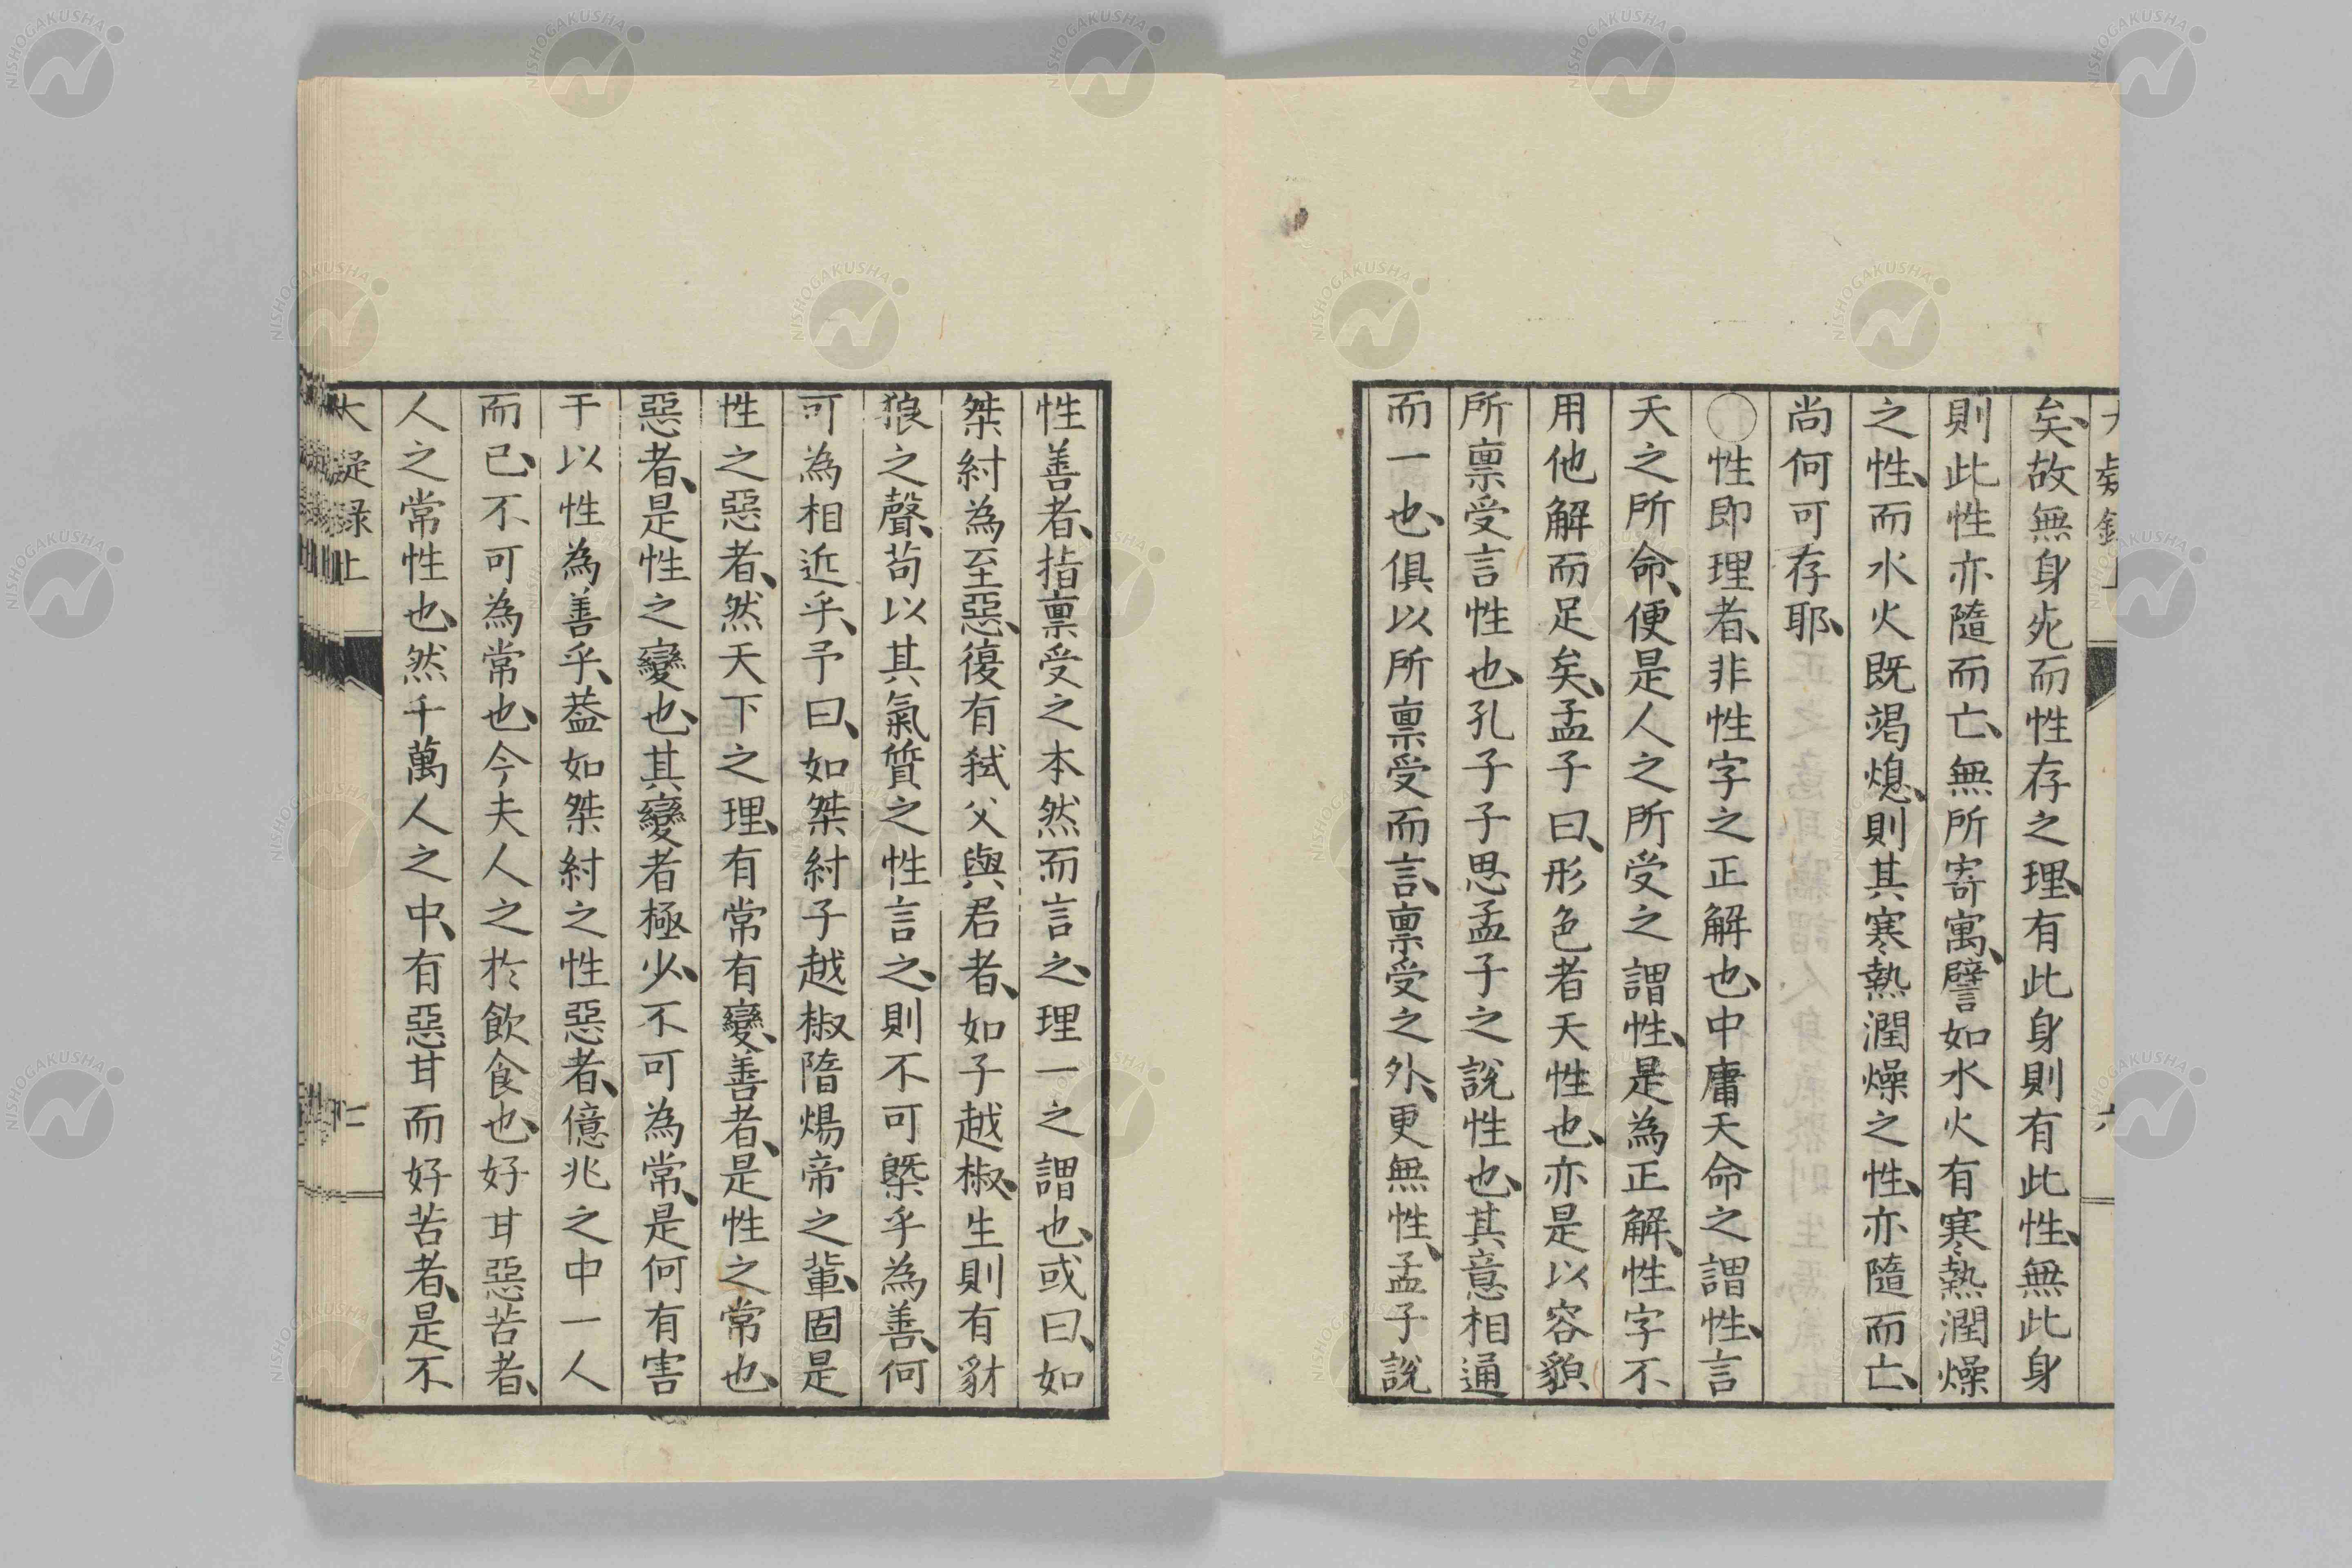 矣、故無身死而性存之理、有此身則有此性、無此身
則此性亦隨而亡、無所寄寓、譬如水火有寒熱潤燥
之性、而水火既竭熄、則其寒熱潤燥之性、亦隨而亡、
尚何可存耶、
○性即理者、非性字之正解也、中庸天命之謂性、言
天之所命、便是人之所受之謂性、是為正解、性字不
用他解而足矣、孟子曰、形色者天性也、亦是以容貌
所禀受言性也、孔子子思孟子之說性也、其意相通
而一也、俱以所禀受而言、禀受之外、更無性、孟子說
性善者、指禀受之本然而言之、理一之謂也、或曰、如
桀紂為至惡、復有弑父與君者、如子越椒、生則有豺
狼之聲、苟以其氣質之性言之、則不可槩乎為善、何
可為相近乎、予曰、如桀紂子越椒隋煬帝之輩、固是
性之惡者、然天下之理、有常有變、善者、是性之常也、
惡者、是性之變也、其變者極少、不可為常、是何有害
于以性為善乎、葢如桀紂之性惡者、億兆之中一人
而已、不可為常也、今夫人之於飲食也、好甘惡苦者、
人之常性也、然千萬人之中、有惡甘而好苦者、是不
大疑録上
NISHOGAKUSHA